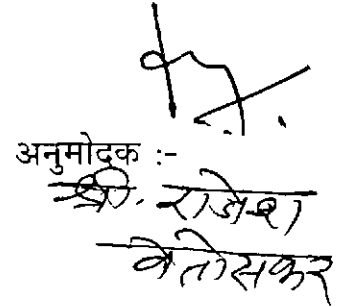 अनुमोदक :-
श्री. राजेश
वेतोसकर